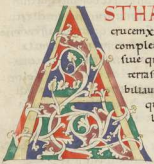 A STHA
crucem x
comple
siue qu
terras
bili aut
qu